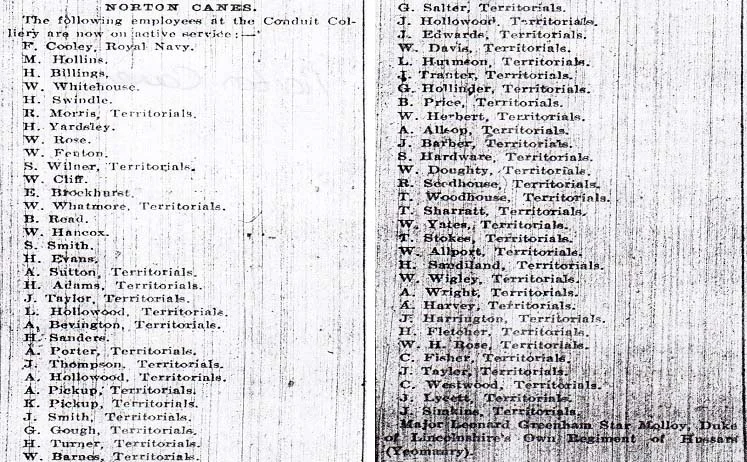 NORTON CANES.
The following employees at the Conduit Col-
liery are now on active service:—
F. Cooley, Royal Navy.
M. Hollins.
H. Billings.
W. Whitehouse.
H. Swindle.
R. Morris, Territorials.
H. Yardsley.
W. Rose.
W. Fenton.
S. Wilner, Territorials.
W. Cliff.
E. Brockhurst.
W. Whatmore, Territorials.
B. Read.
W. Hancox.
S. Smith.
H. Evans.
A. Sutton, Territorials.
H. Adams, Territorials.
J. Taylor, Territorials.
L. Hollowood, Territorials.
A. Bevington, Territorials.
H. Sanders.
A. Porter, Territorials.
J. Thompson, Territorials.
A. Hollowood, Territorials.
A. Pickup, Territorials.
K. Pickup, Territorials.
J. Smith, Territorials.
G. Gough, Territorials.
H. Turner, Territorials.
W. Barnes, Territorials.
G. Salter, Territorials.
J. Hollowood, Territorials.
J. Edwards, Territorials.
W. Davis, Territorials.
L. Territorials.
J. Tranter, Territorials.
G. Hollinder, Territorials.
B. Price, Territorials.
W. Herbert, Territorials.
A. Allsop, Territorials.
J. Barber, Territorials.
S. Hardware, Territorials.
W. Doughty, Territorials.
R. Seedhouse, Territorials.
T. Woodhouse, Territorials.
T. Sharratt, Territorials.
W. Yates, Territorials.
T. Stokes, Territorials.
W. Allport, Territorials.
H. Sandiland, Territorials.
W. Wigley, Territorials.
A. Wright, Territorials.
A. Harvey, Territorials.
J. Harrington, Territorials.
H. Fletcher, Territorials.
W. H. Rose, Territorials.
C. Fisher, Territorials.
J. Tayler, Territorials.
C. Westwood, Territorials.
J. Lycett, Territorials.
J. Simkins, Territorials.
Major Leonard Greenham Star Molloy, Duke
of Lincolnshire's Own Regiment of Hussars
(Yeomanry).